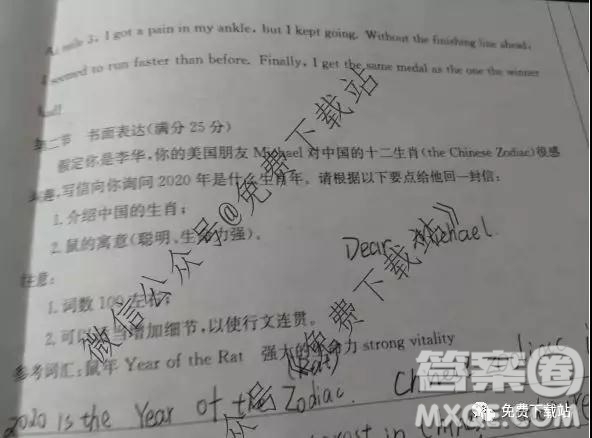 At mile 3, I got a pain in my ankle, but I kept going. Without the finishing line ahead,
I seemed to run faster than before. Finally, I get the same medal as the one the winner
had!
第二节 书面表达(满分25分)
假定你是李华,你的美国朋友Michael对中国的十二生肖(the Chinese Zodiac)很感
兴趣,写信向你询问2020年是什么生肖年。请根据以下要点给他回一封信:
1.介绍中国的生肖;
2.鼠的寓意(聪明、生命力强)。
Dear Michael.
注意:
1.词数100左右;
2.可以适当增加细节,以使行文连贯。
参考词汇:鼠年 Year of the Rat 强大的生命力 strong vitality
(Rat)
2020 is the Year of the Zodiac.
in
微信公众号@免费下载站
免费下载站
公众号
答案圈
MXQE.COM
免费下载站